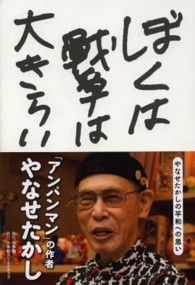 ぼくは
戦争は
大きらい
やなせたかしの平和への思い
「アンパンマン」の作者
やなせたかし